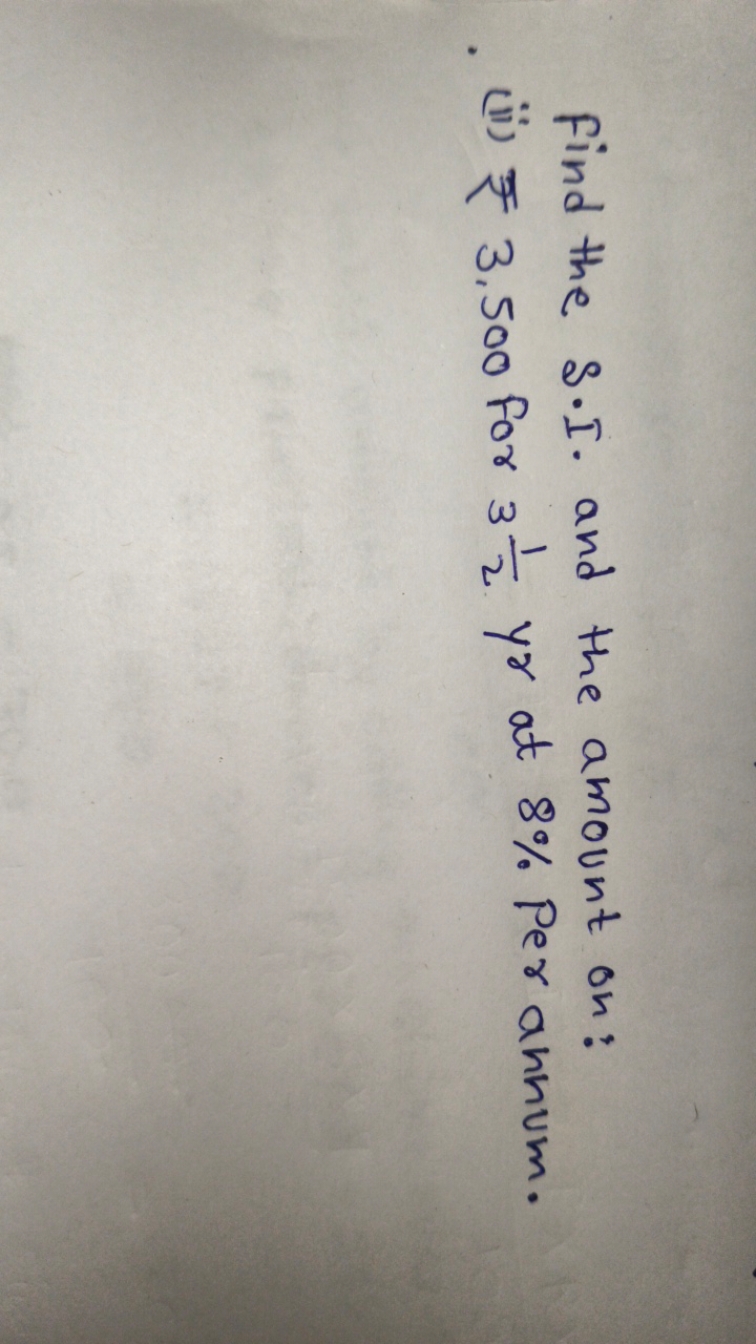 Find the S.I. and the amount on:
(ii) ₹ 3,500 for 3 1/2 yr at 8% Per annum.